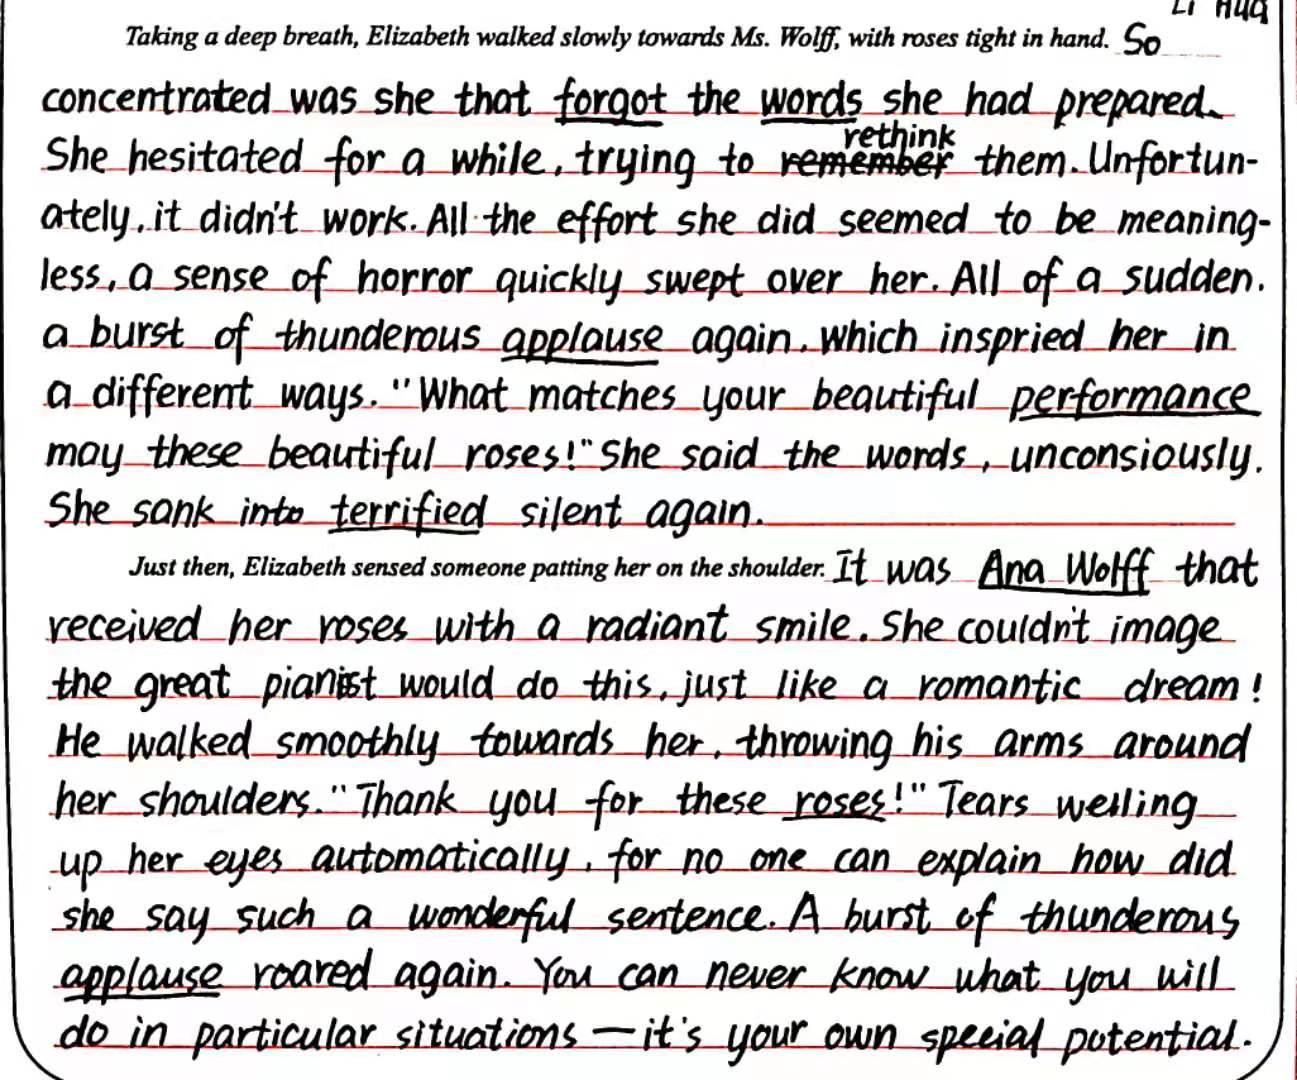 Li Hua
Taking a deep breath, Elizabeth walked slowly towards Ms. Wolff, with roses tight in hand. So
concentrated was she that forgot the words she had prepared.
She hesitated for a while, trying to rethink them. Unfortun-
ately, it didn't work. All the effort she did seemed to be meaning-
less, a sense of horror quickly swept over her. All of a sudden.
a burst of thunderous applause again, which inspried her in
a different ways. "What matches your beautiful performance
may these beautiful roses!" She said the words, unconsiously.
She sank into terrified silent again.
Just then, Elizabeth sensed someone patting her on the shoulder. It was Ana Wolff that
received her roses with a radiant smile. She couldn't image
the great pianist would do this, just like a romantic dream!
He walked smoothly towards her, throwing his arms around
her shoulders. "Thank you for these roses!" Tears welling
up her eyes automatically, for no one can explain how did
she say such a wonderful sentence. A burst of thunderous
applause roared again. You can never know what you will
do in particular situations — it's your own special potential.